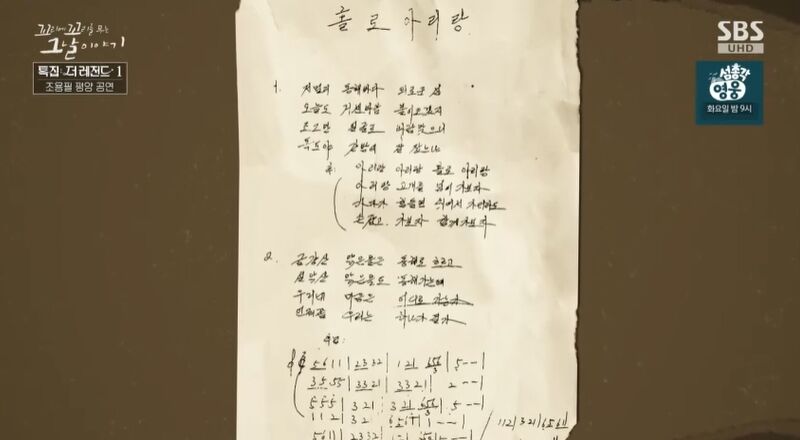 꼬리에 꼬리를 무는
그날 이야기
특집 더 레전드 1
조용필 평양 공연
SBS
UHD
섬총각
영웅
화요일 밤 9시
홀로아리랑
1. 저멀리 동해바다 외로운 섬
오늘도 거센바람 불어오겠지
조그만 얼굴로 바람맞으니
독도야 간밤에 잘 잤느냐
아리랑 아리랑 홀로 아리랑
아리랑 고개를 넘어 가보자
가다가 힘들면 쉬어서 가더라도
손잡고 가보자 함께가보자
2. 금강산 맑은물은 동해로 흐르고
설악산 맑은물도 동해가는데
우리네 마음은 어디로 가는가
언제쯤 우리는 하나가 될까
5611 | 2332 | 1 21 | 5 - - |
3555 | 3321 | 3321 | 2 - - |
555 | 321 | 5 - - |